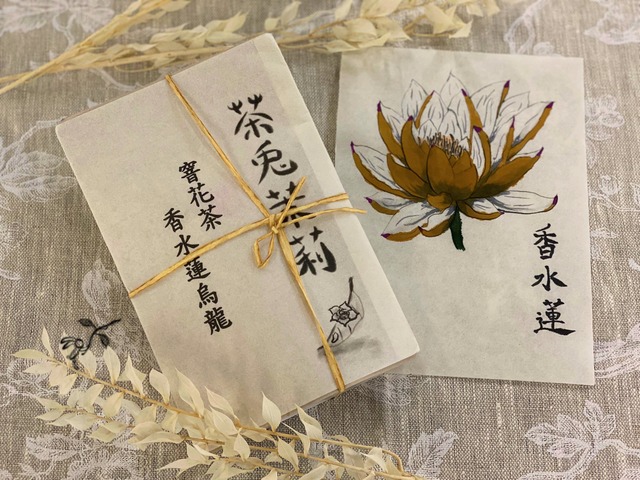 茶兔茉莉
窨花茶
香水蓮烏龍
香水蓮